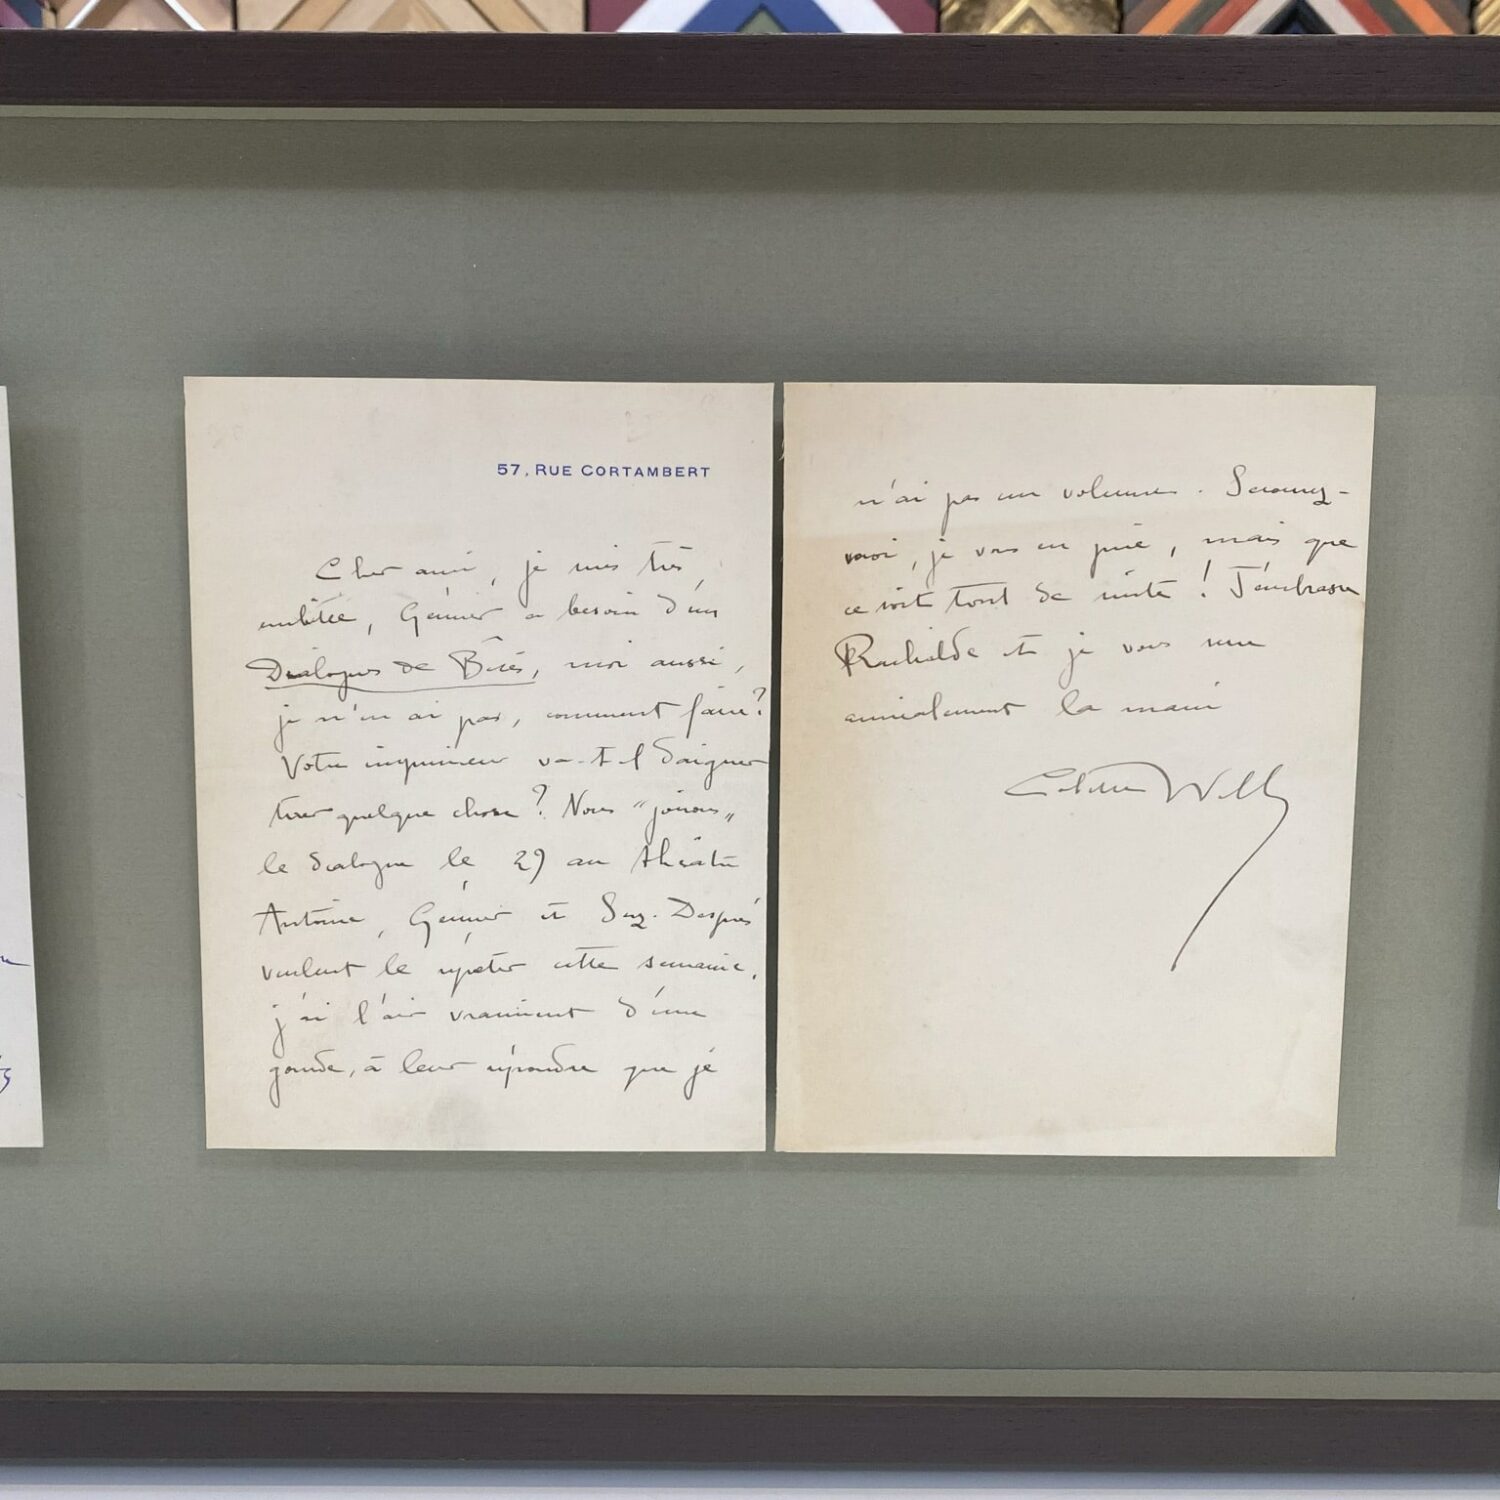 57, RUE CORTAMBERT
Cher ami, je suis très
embêtée, Gémier a besoin d'un
Dialogues de Bêtes, moi aussi,
je n'en ai pas, comment faire?
Votre imprimeur va-t-il daigner
tirer quelque chose? Nous "jouons"
le dialogue le 29 au théâtre
Antoine, Gémier et Suz. Després
veulent le répéter cette semaine,
j'ai l'air vraiment d'une
gourde, à leur répondre que je
n'ai pas un volume. Secourez-
moi, je vous en prie, mais que
ce soit tout de suite! J'embrasse
Rachilde et je vous serre
amicalement la main
Colette Willy